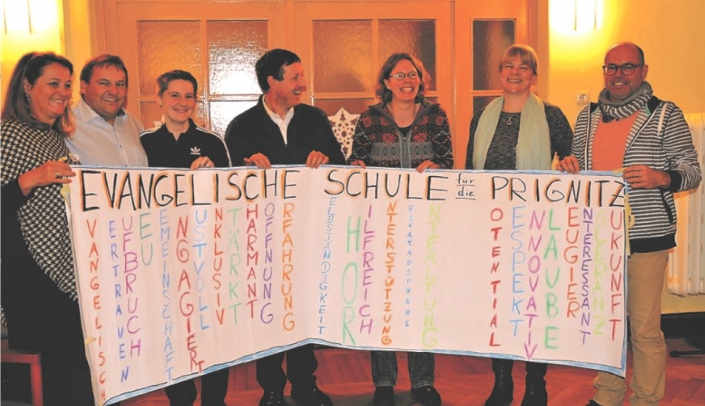 EVANGELISCHE SCHULE für die PRIGNITZ
VANGELISCH
ERTRAUEN
UFBRUCH
EU
EMEINSCHAFT
NGAGIERT
USTVOLL
NKLUSIV
TÄRKT
HARMANT
OFFNUNG
RFAHRUNG
ELBSTÄNDIGKEIT
HOR
ILFREICH
NTERSTÜTZUNG
NTFALTUNG
OTENTIAL
ESPEKT
NNOVATIV
LAUBE
EUGIER
NTERESSANT
OLERANZ
UKUNFT